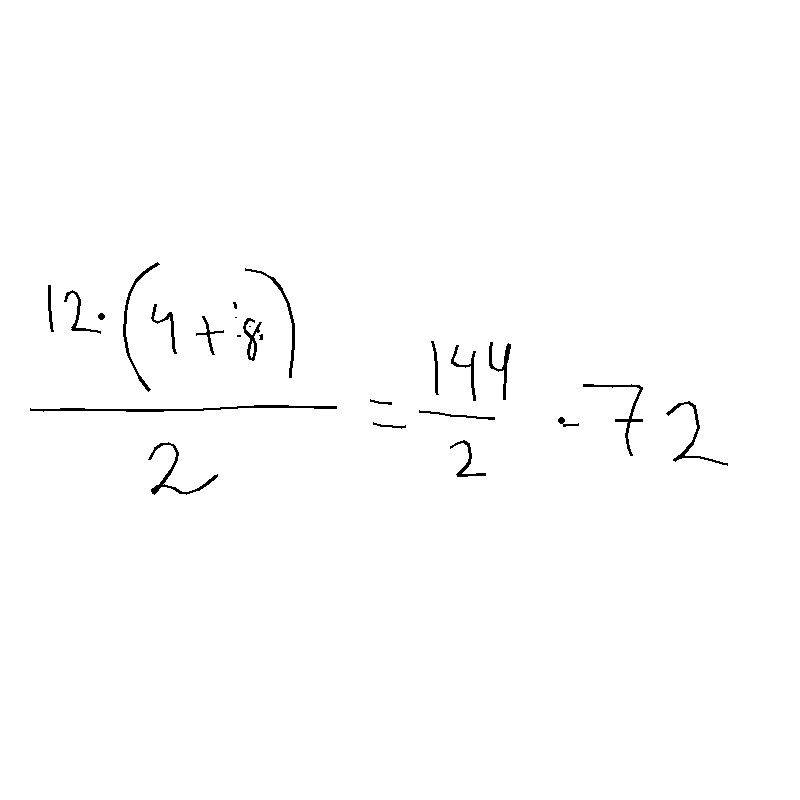 12·(4+8)/2 = 144/2 · 72